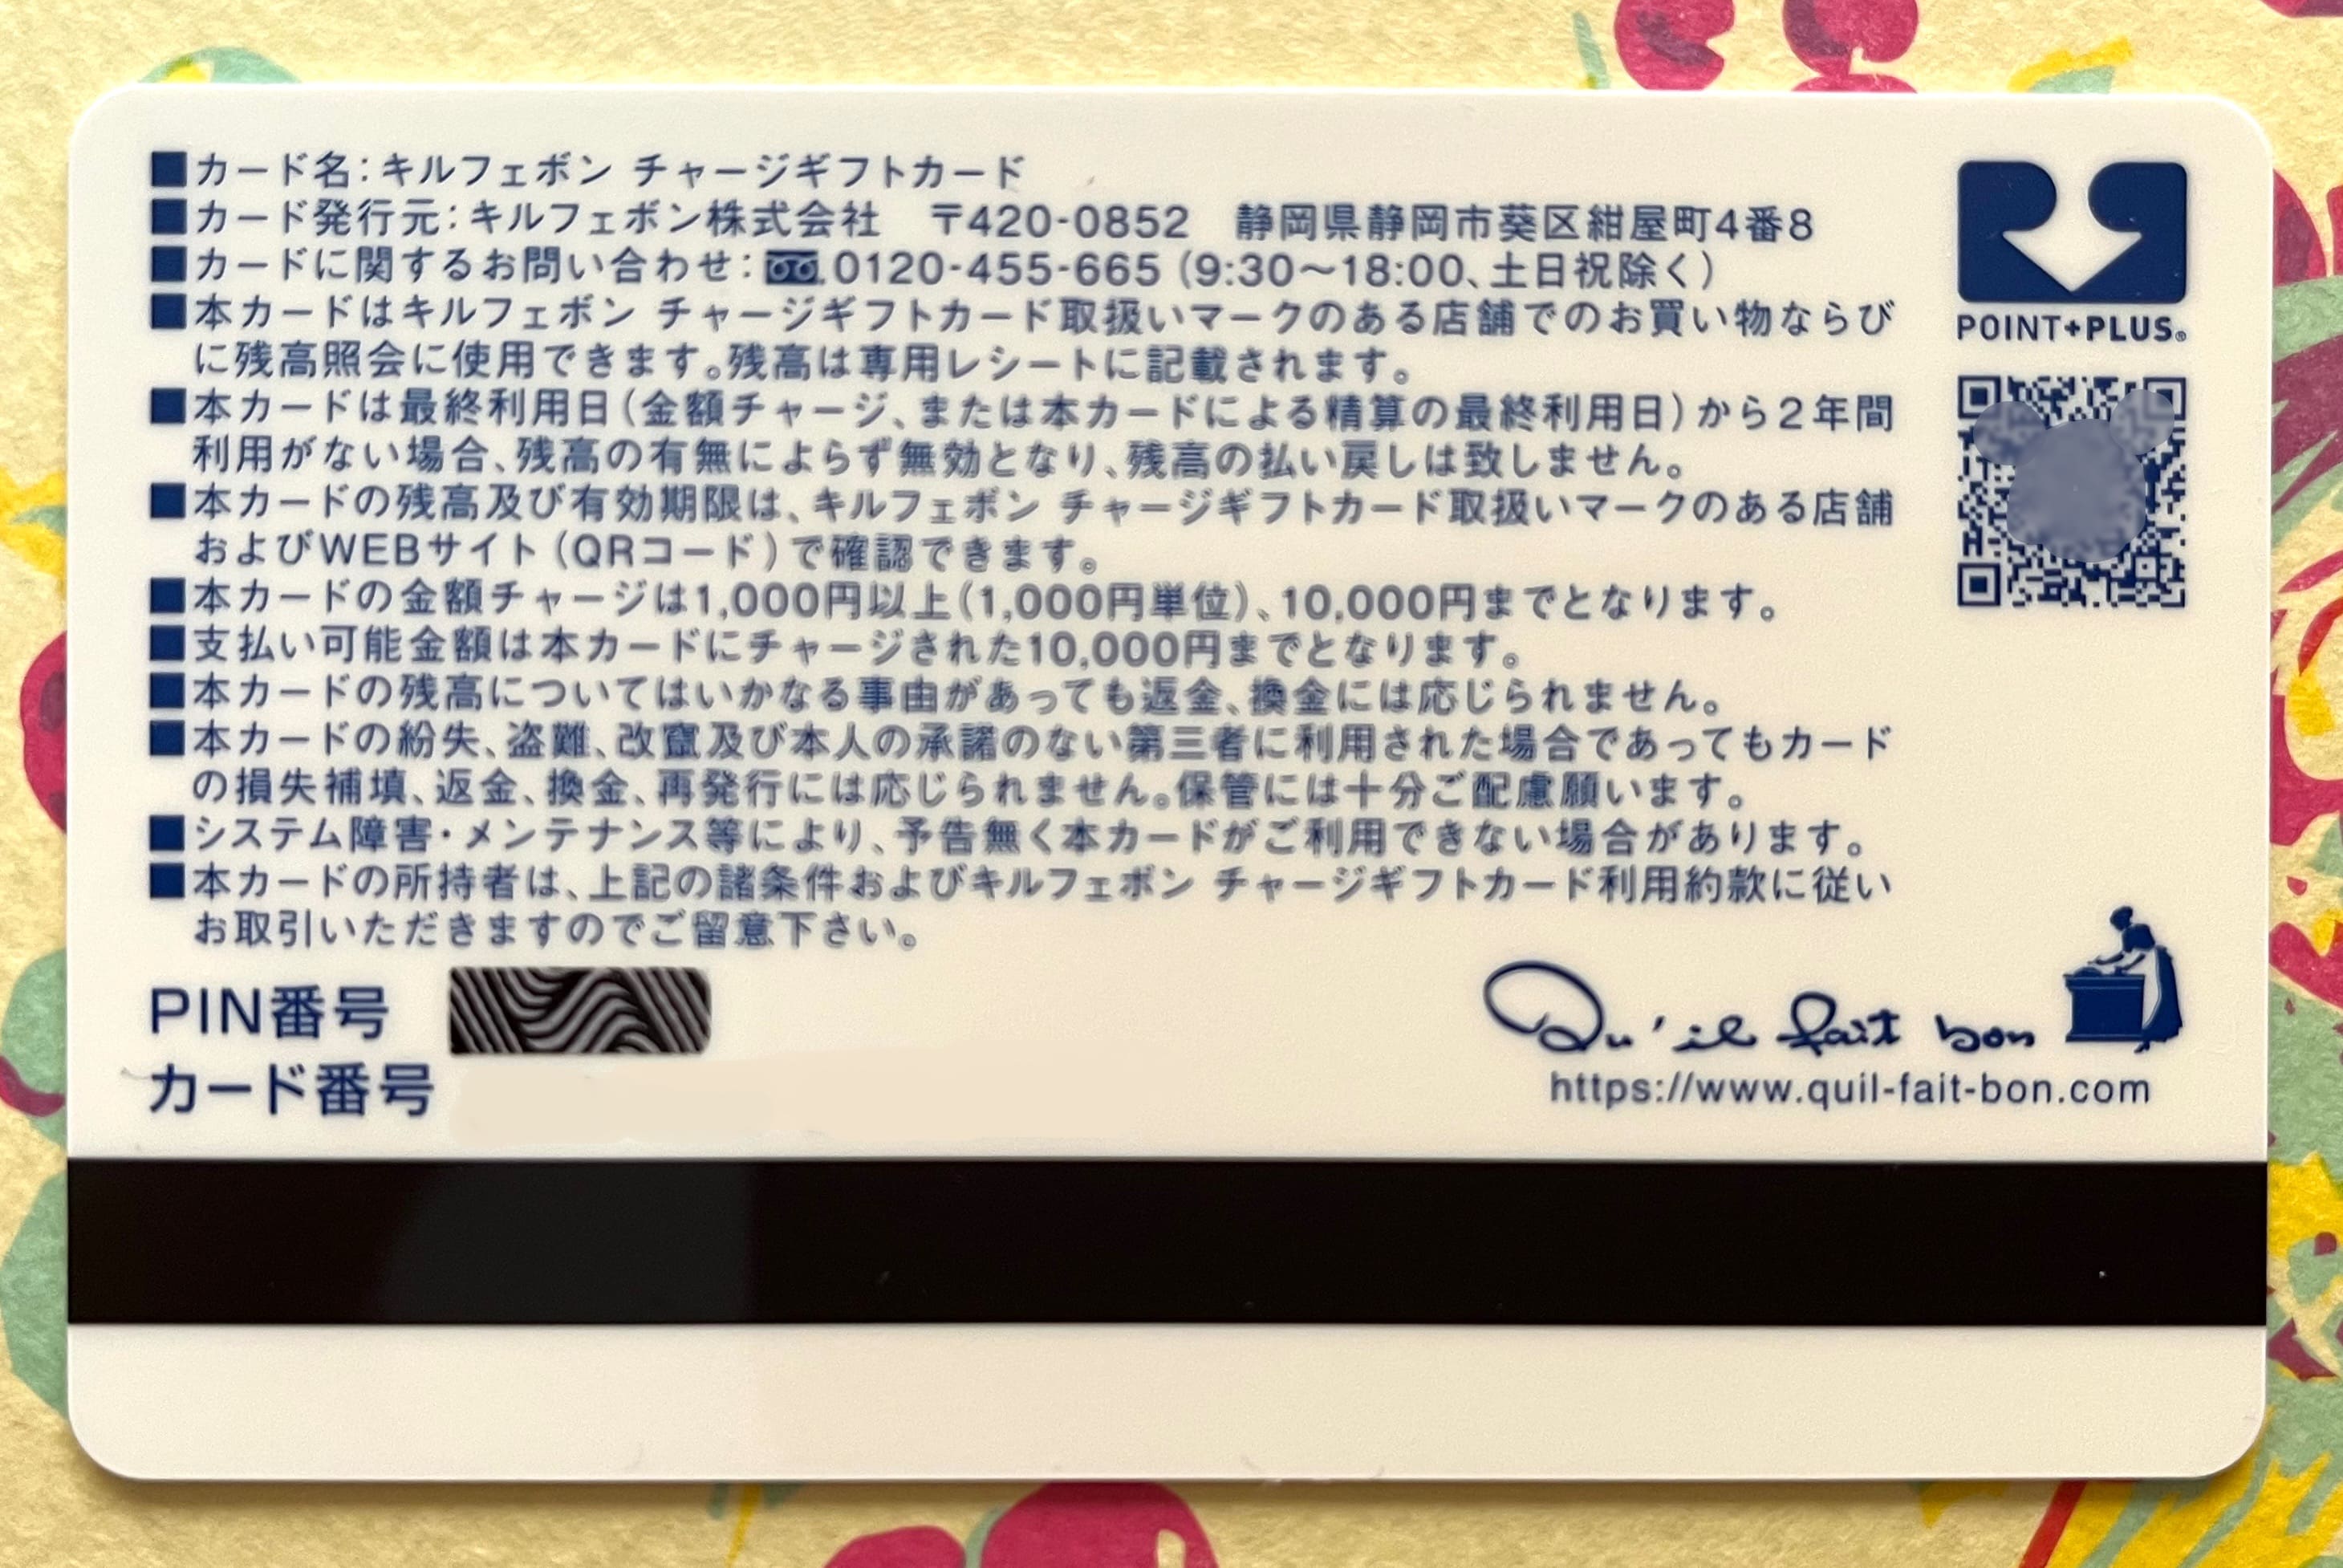 ■カード名：キルフェボン チャージギフトカード
■カード発行元：キルフェボン株式会社　〒420-0852　静岡県静岡市葵区紺屋町4番8
■カードに関するお問い合わせ：0120-455-665（9:30～18:00、土日祝除く）
■本カードはキルフェボン チャージギフトカード取扱いマークのある店舗でのお買い物ならび
に残高照会に使用できます。残高は専用レシートに記載されます。
■本カードは最終利用日（金額チャージ、または本カードによる精算の最終利用日）から2年間
利用がない場合、残高の有無によらず無効となり、残高の払い戻しは致しません。
■本カードの残高及び有効期限は、キルフェボン チャージギフトカード取扱いマークのある店舗
およびWEBサイト（QRコード）で確認できます。
■本カードの金額チャージは1,000円以上（1,000円単位）、10,000円までとなります。
■支払い可能金額は本カードにチャージされた10,000円までとなります。
■本カードの残高についてはいかなる事由があっても返金、換金には応じられません。
■本カードの紛失、盗難、改竄及び本人の承諾のない第三者に利用された場合であってもカード
の損失補填、返金、換金、再発行には応じられません。保管には十分ご配慮願います。
■システム障害・メンテナンス等により、予告無く本カードがご利用できない場合があります。
■本カードの所持者は、上記の諸条件およびキルフェボン チャージギフトカード利用約款に従い
お取引いただきますのでご留意下さい。
POINT+PLUS®
PIN番号
カード番号
Qu'il fait bon
https://www.quil-fait-bon.com